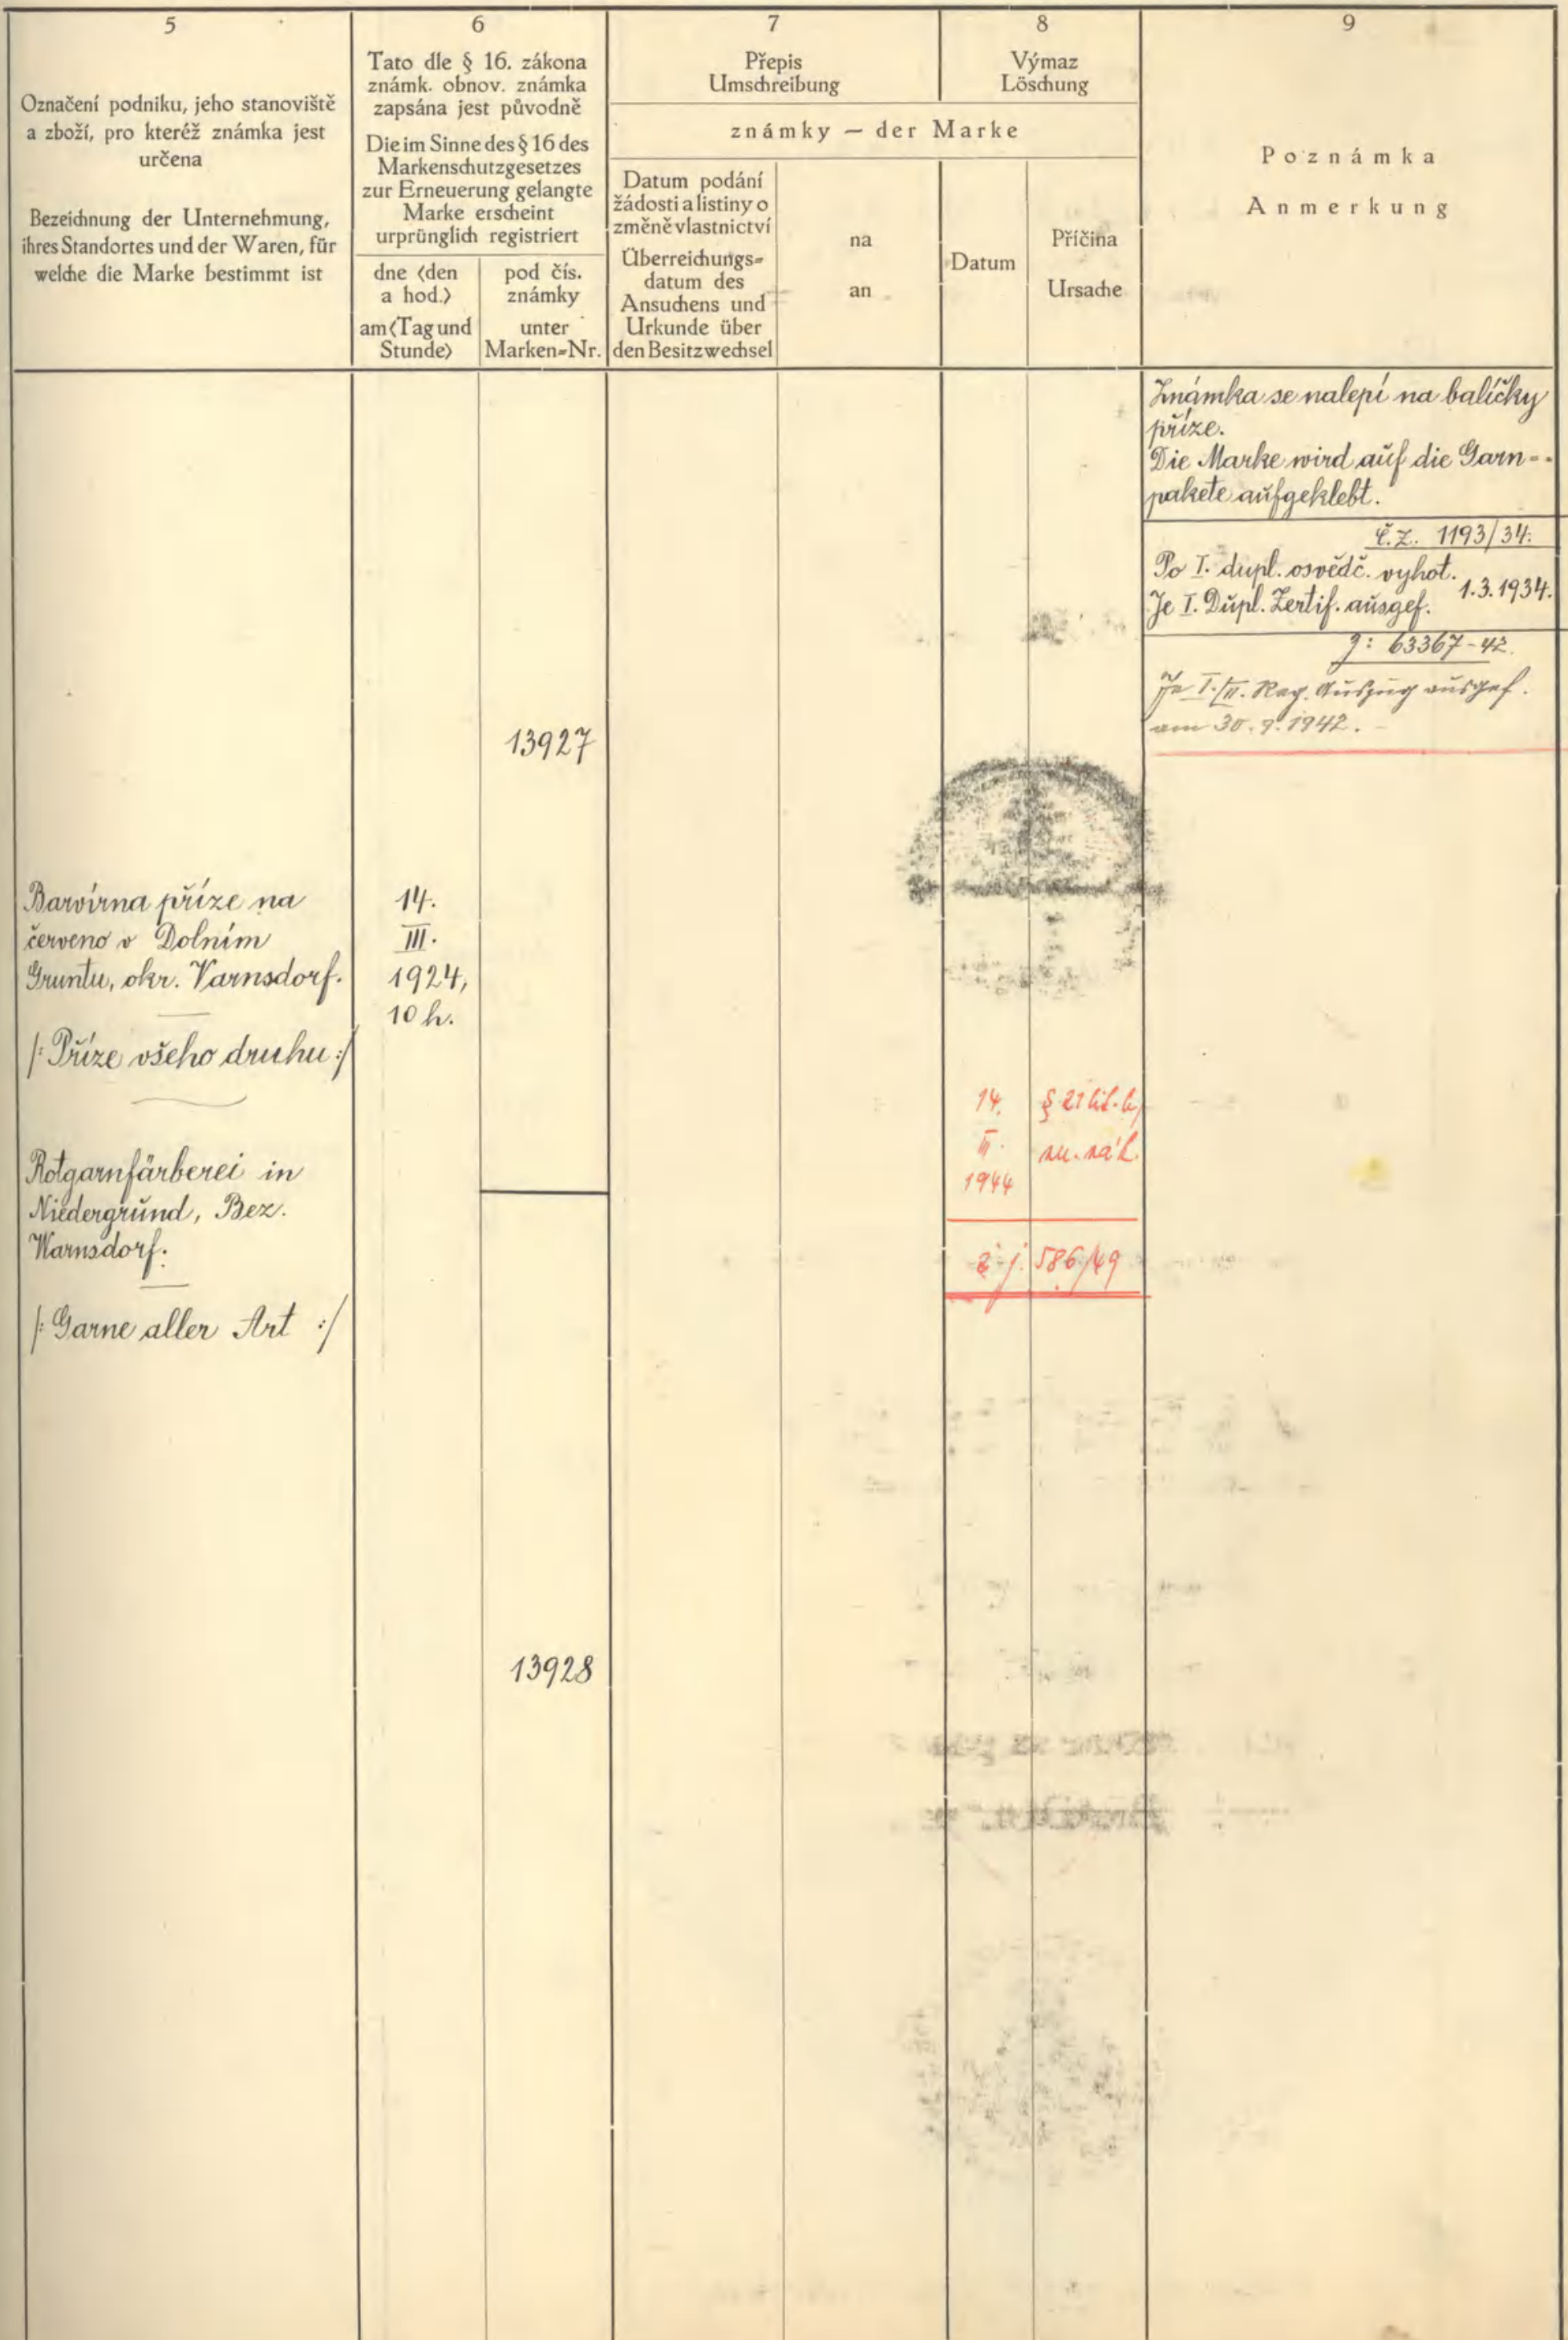 5
Označení podniku, jeho stanoviště
a zboží, pro kteréž známka jest
určena
Bezeichnung der Unternehmung,
ihres Standortes und der Waren, für
welche die Marke bestimmt ist
6
Tato dle § 16. zákona
známk. obnov. známka
zapsána jest původně
Die im Sinne des § 16 des
Markenschutzgesetzes
zur Erneuerung gelangte
Marke erscheint
urprünglich registriert
dne (den
a hod.)
am (Tag und
Stunde)
pod čís.
známky
unter
Marken=Nr.
7
Přepis
Umschreibung
8
Výmaz
Löschung
známky — der Marke
Datum podání
žádosti a listiny o
změně vlastnictví
Überreichungs=
datum des
Ansuchens und
Urkunde über
den Besitzwechsel
na
an
Datum
Příčina
Ursache
9
Poznámka
Anmerkung
Barvírna příze na
červeno v Dolním
Gruntu, okr. Varnsdorf.
/: Příze všeho druhu :/
Rotgarnfärberei in
Niedergrund, Bez.
Warnsdorf.
/: Garne aller Art :/
14.
III.
1924,
10 h.
13927
13928
14.
III.
1944
§ 21 lit. b,
zn. zák.
č. j. 586/49
Známka se nalepí na balíčky
příze.
Die Marke wird auf die Garn=
pakete aufgeklebt.
Č.Z. 1193/34.
Po I. dupl. osvědč. vyhot.
Je I. Dupl. Zertif. ausgef. 1.3.1934.
J: 63367-42.
Je I./II. Reg. Auszug ausgef.
am 30.9.1942.